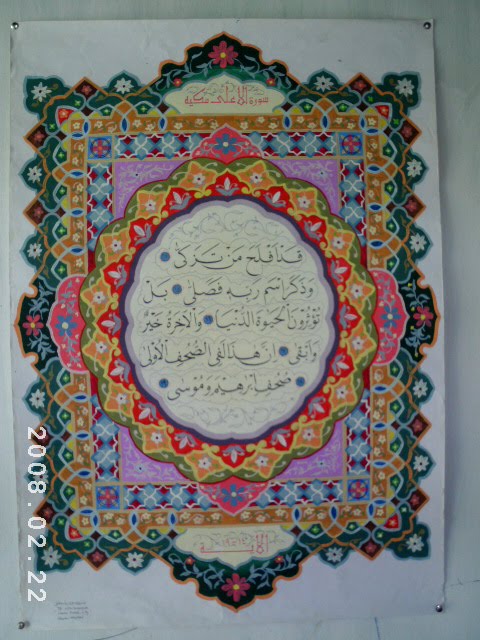 سورة الأعلى مكية
قد افلح من تزكى
وذكر اسم ربه فصلى بل
تؤثرون الحيوة الدنيا والاخرة خير
وابقى ان هذا لفى الصحف الاولى
صحف ابرهيم وموسى
الآية
2008.02.22